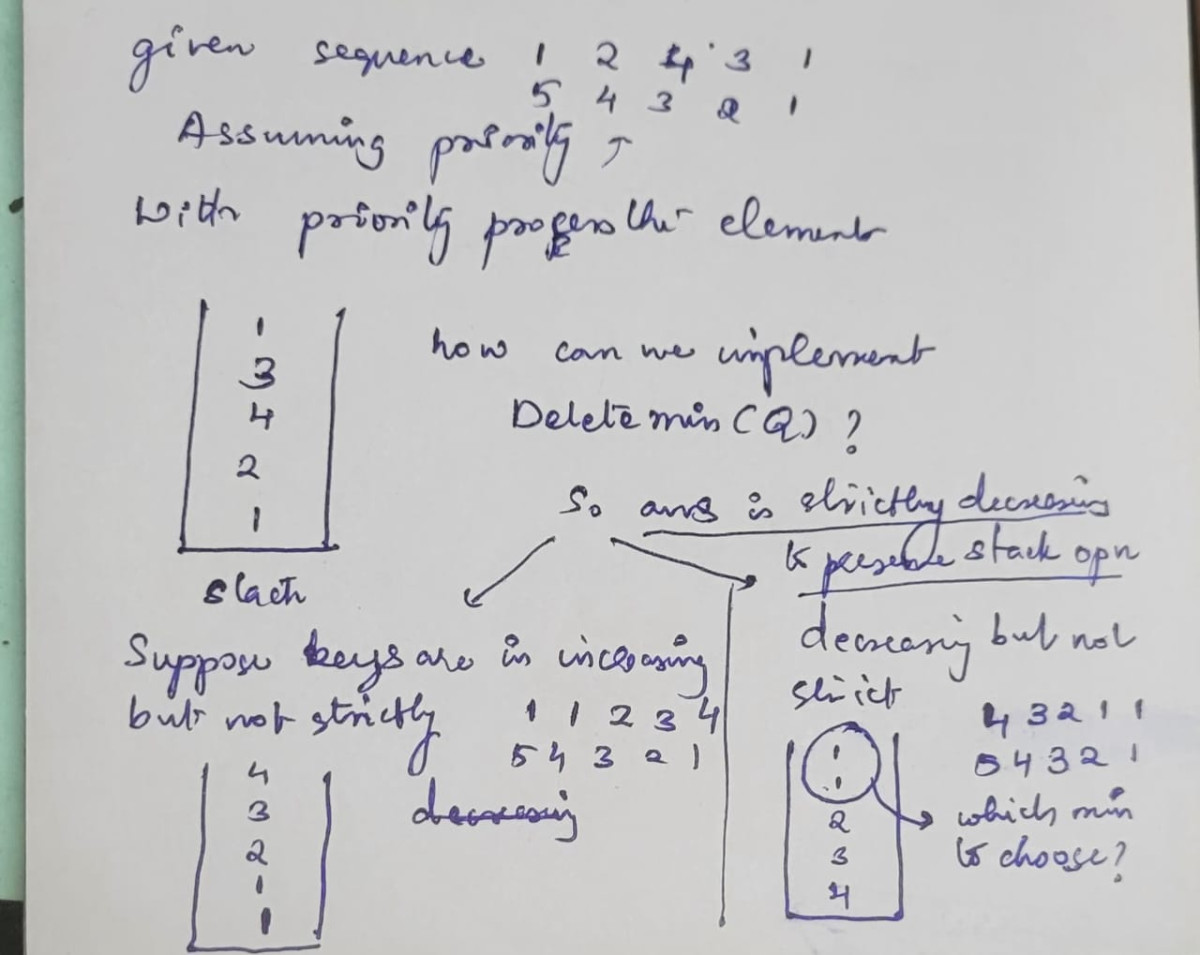 given sequence 1 2 4 3 1
5 4 3 2 1
Assuming priority ↑
with priority process the elements
1
3
4
2
1
stack
how can we implement
Deletemin(Q)?
So ans is strictly decreasing
to preserve stack opn
Suppose keys are in increasing
but not strictly 1 1 2 3 4
5 4 3 2 1
decreasing
4
3
2
1
1
decreasing but not
strict
4 3 2 1 1
5 4 3 2 1
1
1
2
3
4
which min
to choose?